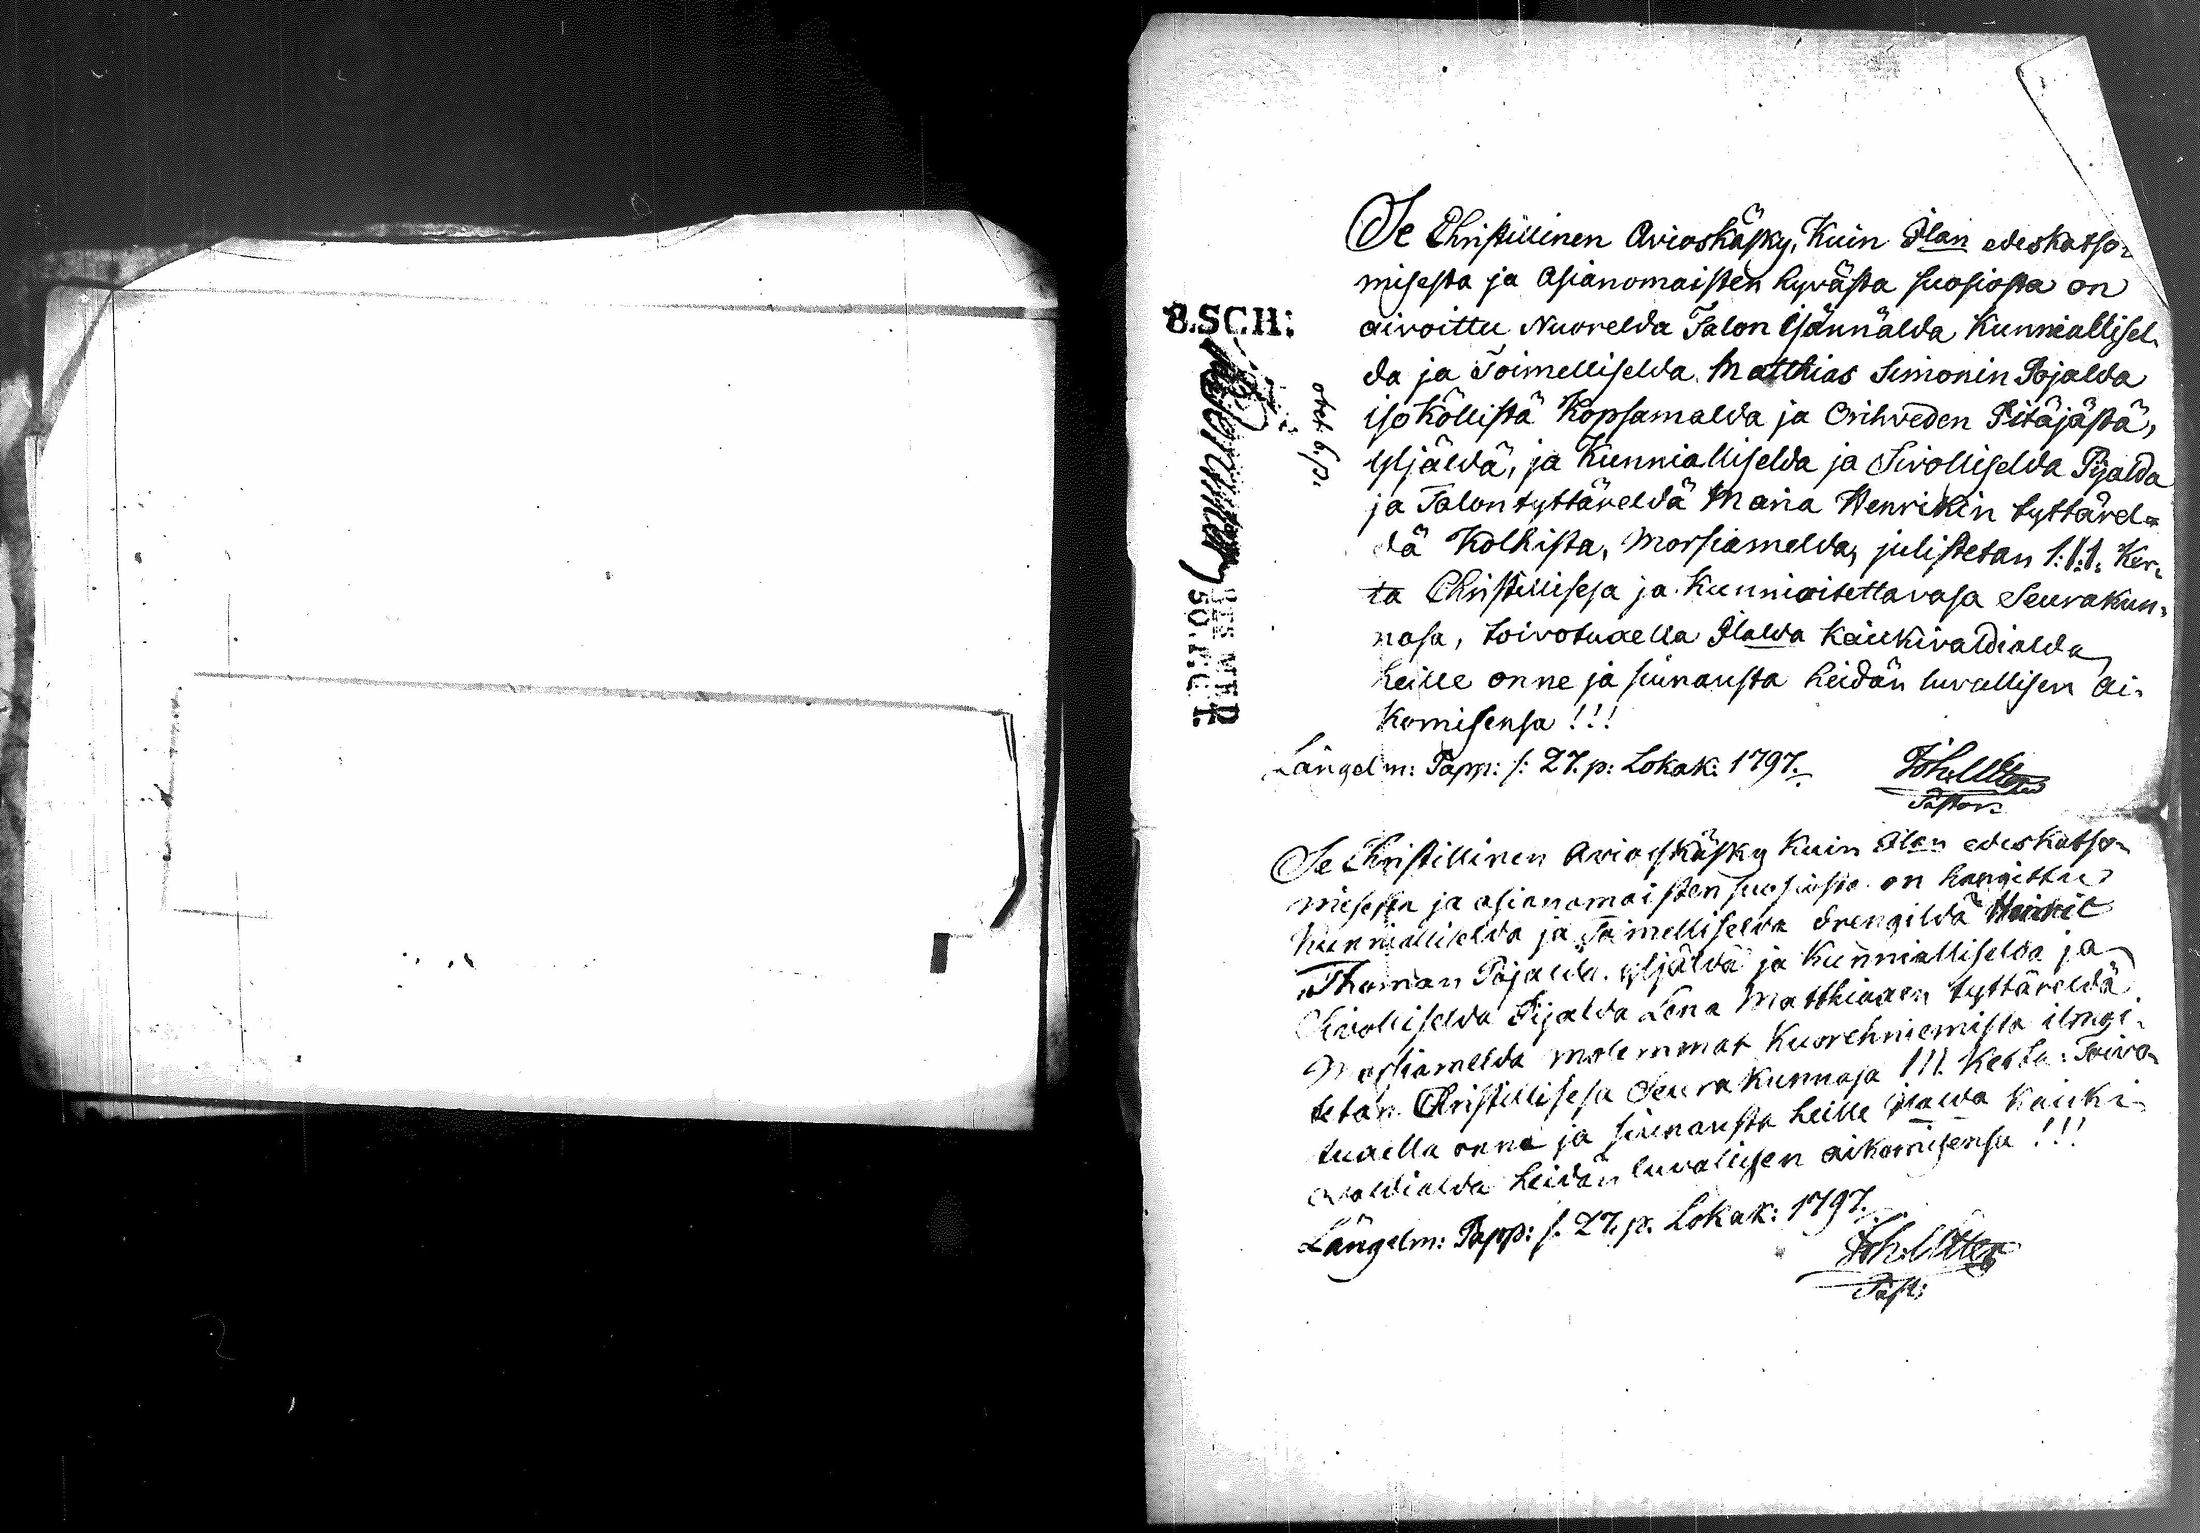 Se Christillinen Avioskäsky, Kuin Ilan edeskatso-
misesta ja Asianomaisten hyvästa suosiosta on
aivoittu Nuorelda Talon Isännälda Kunniallisel-
da ja Toimelliselda Matthias Simonin Pojalda
iso Köllistä Kopsamalda ja Orihveden Pitäjästä,
Yljäldä, ja Kunnialliselda ja Sivolliselda Pijalda
ja Talon tyttäreldä Maria Henrikin tyttärel=
dä Kolhista, Morsiamelda, julistetan 1:1:1. Ker-
ta Christillisesa ja Kunnioitettavasa Seurakun-
nasa, toivotuxella Ilalda Kaickivaldialda
heille onne ja siunausta heidän luvallisen Ai-
komisensa!!!
Längelm: Papp: s: 27. p: Lokak: 1797.
Pastor
8.SCH:
Se Christillinen Avioskäsky Kuin Ilan edeskatso-
misesta ja asianomaisten suosiosta on hangittu
Kunnialliselda ja Toimelliselda Drengildä
Thoman Pojalda Yljäldä ja Kunnialliselda ja
Sivolliselda Pijalda Lena Matthiaxen tyttäreldä
Morsiamelda molemmat Kuorehniemista ilmoi-
tetan Christillisesa Seurakunnasa 1!1. Kerta: Toivo-
tuxella onne ja siunausta heille Ilalda Kaicki-
valdialda heidän luvallisen aikomisensa!!!
Längelm: Papp: s. 27. p. Lokak: 1797.
Past: